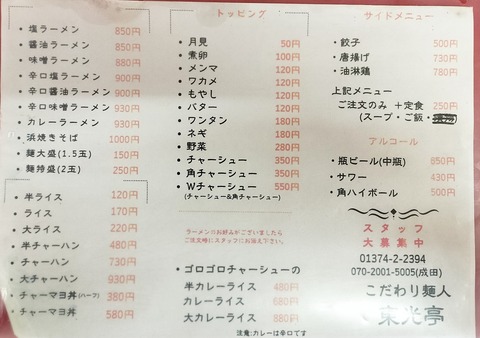 ・塩ラーメン 850円
・醤油ラーメン 850円
・味噌ラーメン 880円
・辛口塩ラーメン 900円
・辛口醤油ラーメン 900円
・辛口味噌ラーメン 930円
・カレーラーメン 930円
・浜焼きそば 1000円
・麺大盛(1.5玉) 150円
・麺特盛(2玉) 250円
・半ライス 120円
・ライス 170円
・大ライス 220円
・半チャーハン 480円
・チャーハン 730円
・大チャーハン 930円
・チャーマヨ丼(ハーフ) 380円
・チャーマヨ丼 580円
トッピング
・月見 50円
・煮卵 100円
・メンマ 120円
・ワカメ 120円
・もやし 120円
・バター 120円
・ワンタン 180円
・ネギ 180円
・野菜 280円
・チャーシュー 350円
・角チャーシュー 350円
・Wチャーシュー 550円
(チャーシュー&角チャーシュー)
ラーメンのお好みがございましたら
ご注文時にスタッフにお伝え下さい。
・ゴロゴロチャーシューの
半カレーライス 480円
カレーライス 680円
大カレーライス 880円
注意:カレーは辛口です
サイドメニュー
・餃子 500円
・唐揚げ 730円
・油淋鶏 780円
上記メニュー
ご注文のみ +定食 250円
(スープ・ご飯・
アルコール
・瓶ビール(中瓶) 650円
・サワー 430円
・角ハイボール 500円
スタッフ
大募集中
01374-2-2394
070-2001-5005(成田)
こだわり麺人
東光亭